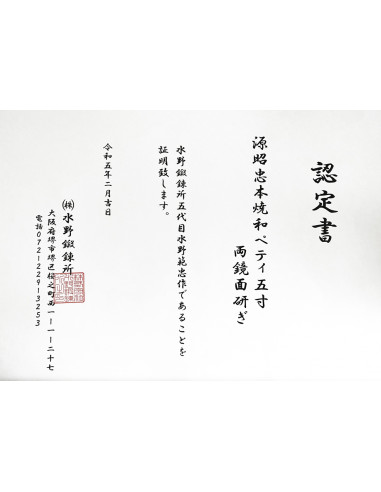 認定書
源昭忠本焼和ペティ五寸
両鏡面研ぎ
水野鍛錬所五代目水野範忠作であることを
証明致します。
令和五年二月吉日
㈱水野鍛錬所
大阪府堺市堺区桜之町西一ー一ー二十七
電話０７２ー２２９ー３２５３